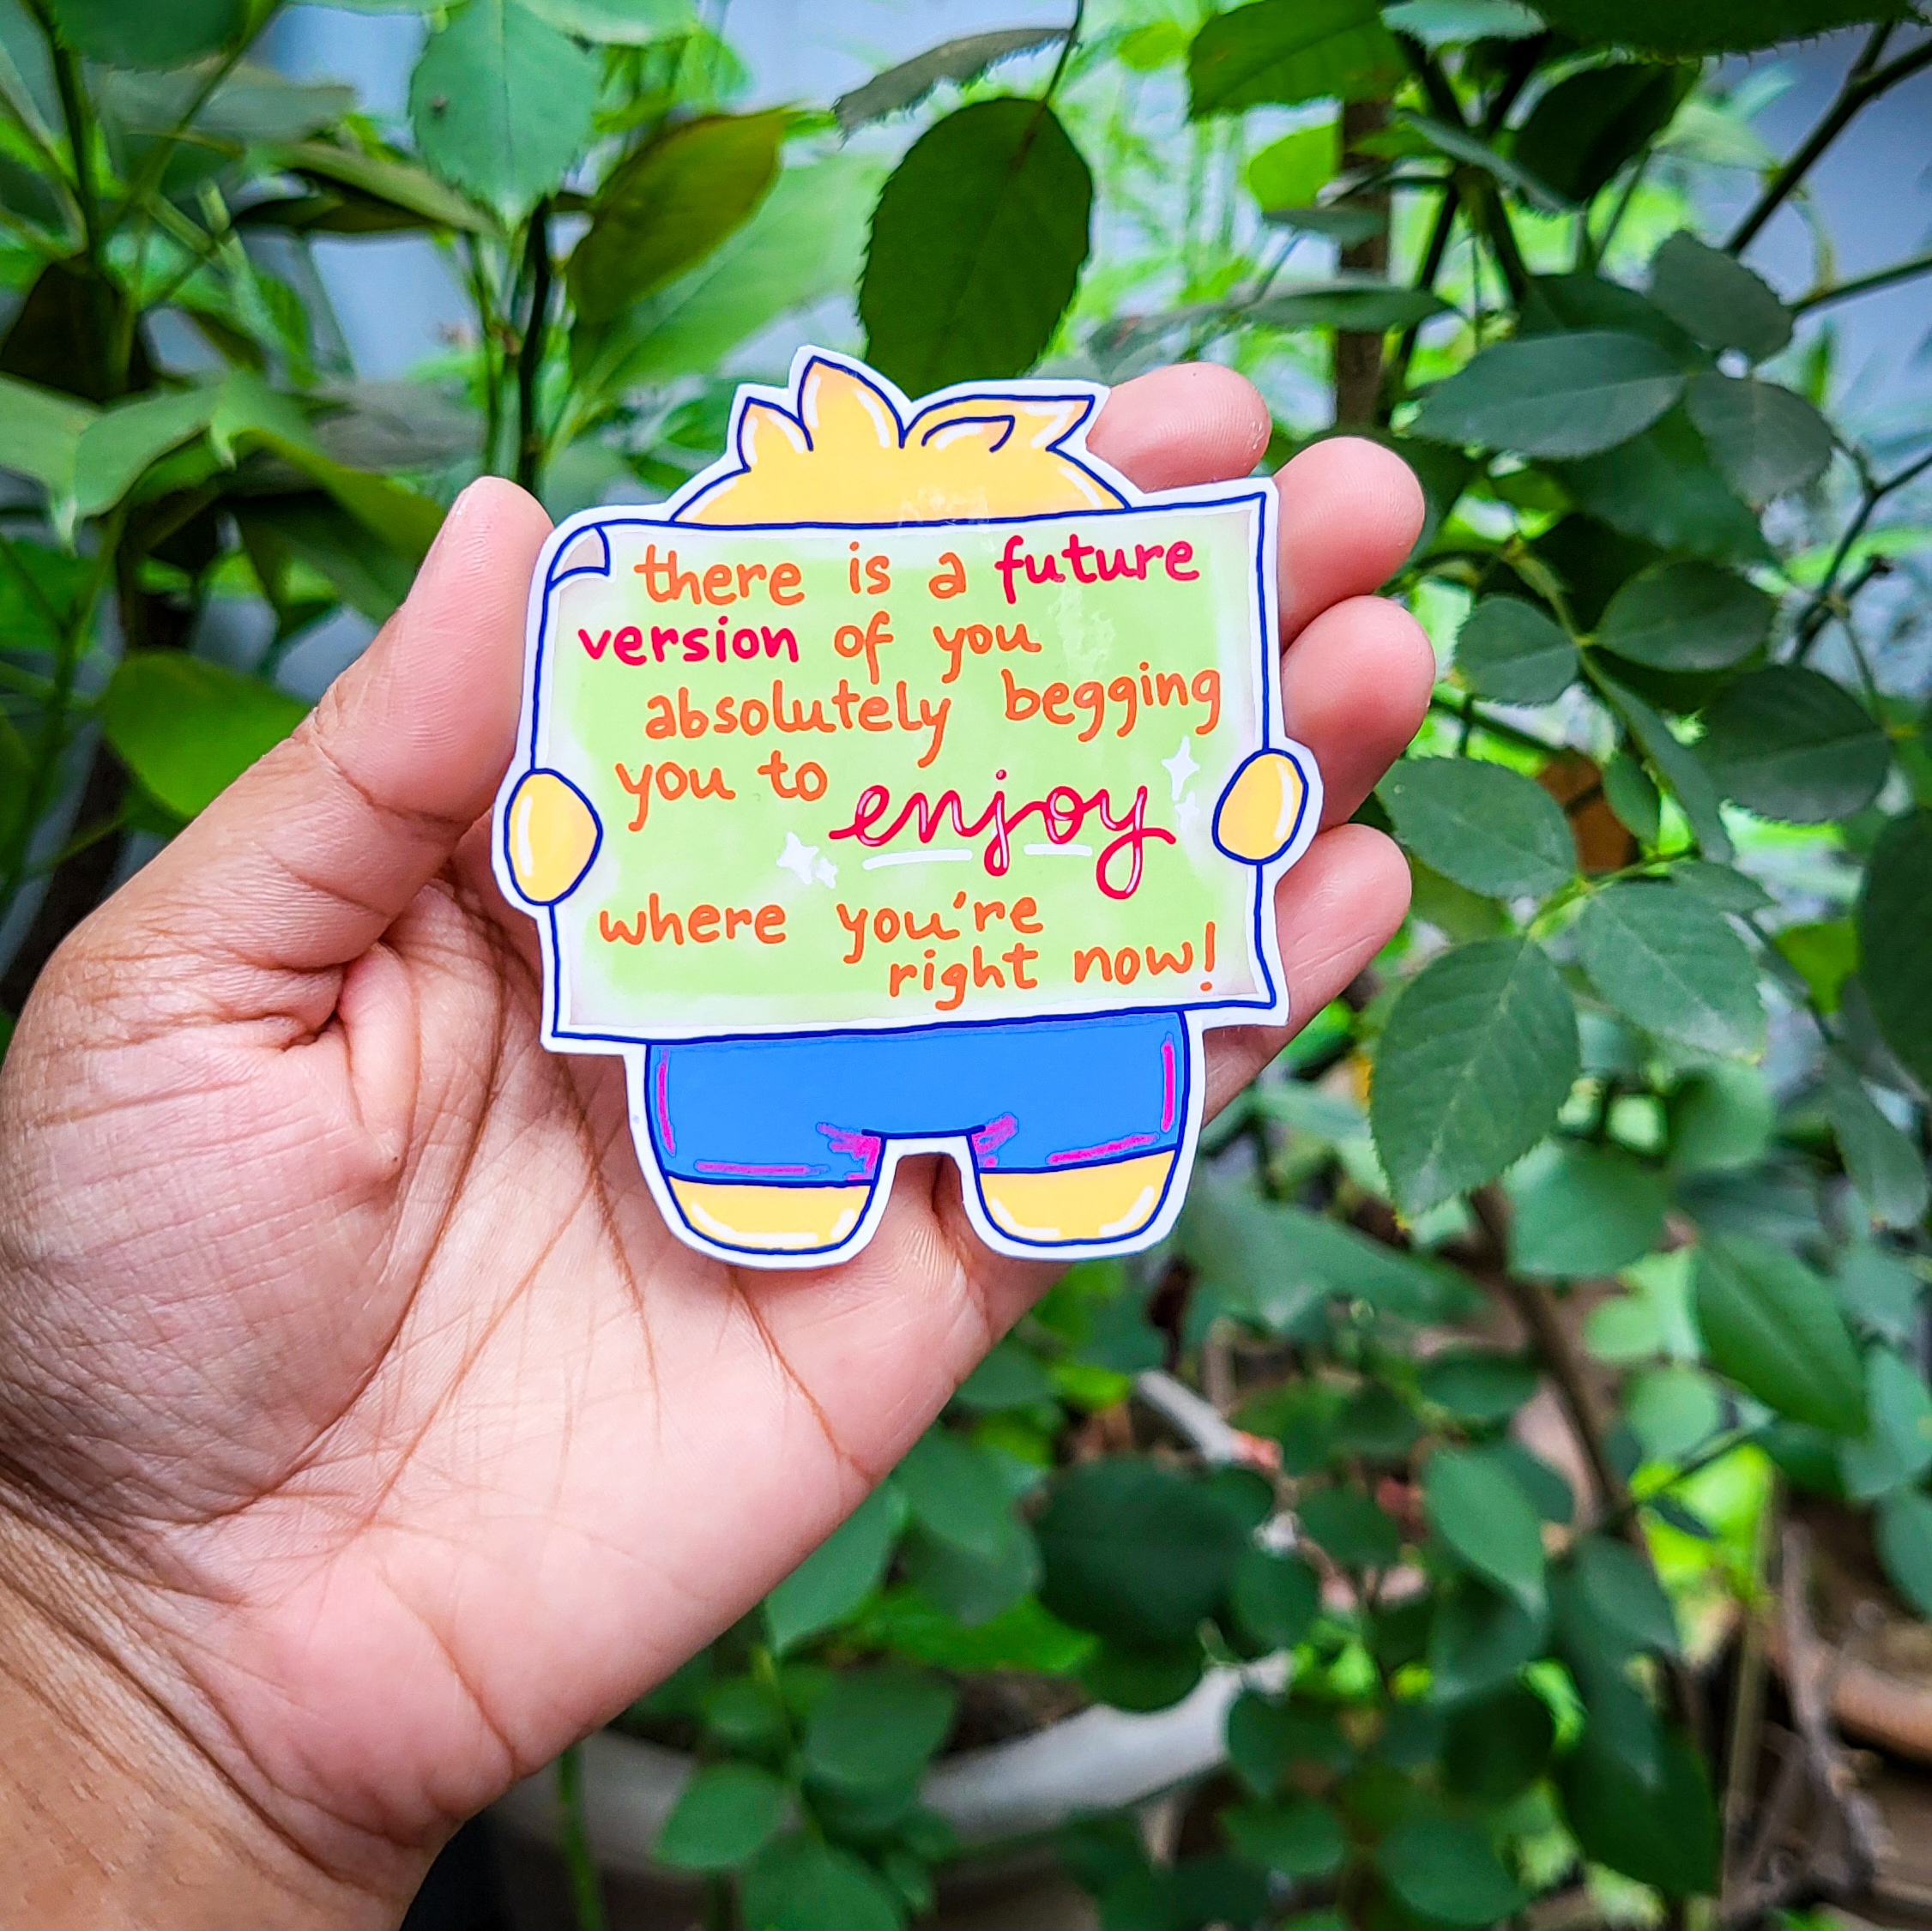 there is a future
version of you
absolutely begging
you to enjoy
where you're
right now!